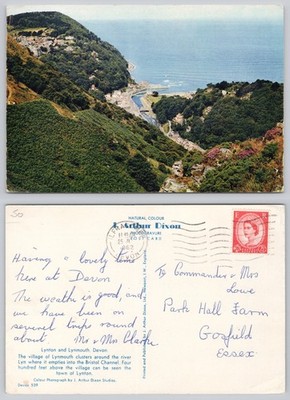 50
NATURAL COLOUR
J. Arthur Dixon
PHOTOGRAVURE
POST CARD
Having a lovely time
here at Devon
The weath is good, and
we have been on
several trips round
about Mr & Mrs Clarke
Lynton and Lynmouth, Devon
The village of Lynmouth clusters around the river
Lyn where it empties into the Bristol Channel. Four
hundred feet above the village can be seen the
town of Lynton.
Colour Photograph by J. Arthur Dixon Studios.
Printed and Published by J. Arthur Dixon Ltd.
To Commander & Mrs
Lowe
Park Hall Farm
Gosfield
Essex